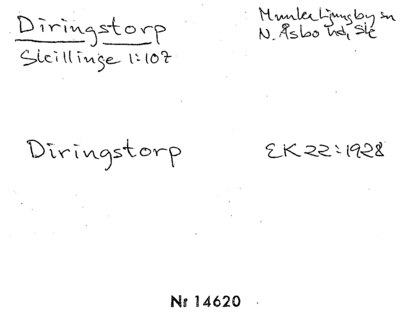 Diringstorp
Skillinge 1:107
Munka Ljungby sn
N. Åsbo hd, Sk
Diringstorp
EK 22:1928
Nr 14620